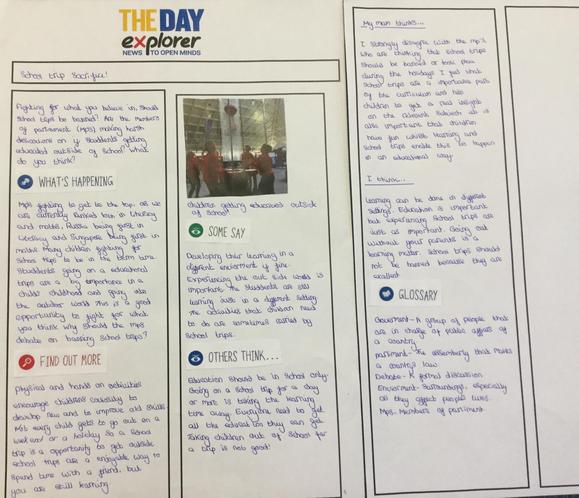 THE DAY
explorer
NEWS TO OPEN MINDS
School trip Sacrifice!
Fighting for what you believe in, should
School trips be banned? Are the members
of parliment (mps) making harsh
on students getting
educated outside of School? what
do you think?
WHAT'S HAPPENING
Mps fighting to get to the top. as we
are currently ranked both in literacy
and maths. Russia being first in
Literacy and Singapore being first in
maths. Many children fighting for
School trips to be in the term time.
Students going on a educational
trips are a big importance in a
childs childhood and going into
the outdoor world. This is a good
opportunity to fight for what
you think. why should the mps
debate on banning School trips?
FIND OUT MORE
Physical and hands on activities
encourage childrens curiosity to
develop new and to improve old skills
Not every child gets to go out on a
weekend or a holiday. So a School
trip is a opportunity to get outside
School trips are a enjoyable way to
spend time with a friend, but
you are still learning
children getting educated outside
of School
SOME SAY
Developing their learning in a
different enviorment is fine.
Experiencing the out side world is
important. The Students are still
learning just in a different setting
The activities that children need
to do are sometimes by
School trips.
OTHERS THINK...
Education should be in School only.
Going on a School trip for a day
or more is taking the learning
time away. Everyone need to get
all the education they can get.
Taking children out of School for
a trip is not good!
My mum thinks...
I strongly disagree with the mp's
who are thinking that School trips
Should be banned or took place
during the holidays. I feel that
School trips are a important part
of the curriculum and help
children to get a real insight
on the relevant Subject. it is
also important that children
have fun whilst learning and
School trips enable this to happen
in an educational way.
I think...
Learning can be done in different
settings. Education is important
but experiencing School trips are
Just as important. Going out
without your parents is a
learning matter. School trips should
not be banned because they are
excellent
GLOSSARY
Goverment- A group of people that
are in charge of public affairs of
a country
parliment- The assemberly that makes
a country's law
Debate- A formal discussion
Enviorment- Surroundings, especially
as they affect peoples lives.
Mps- Members of parliment.